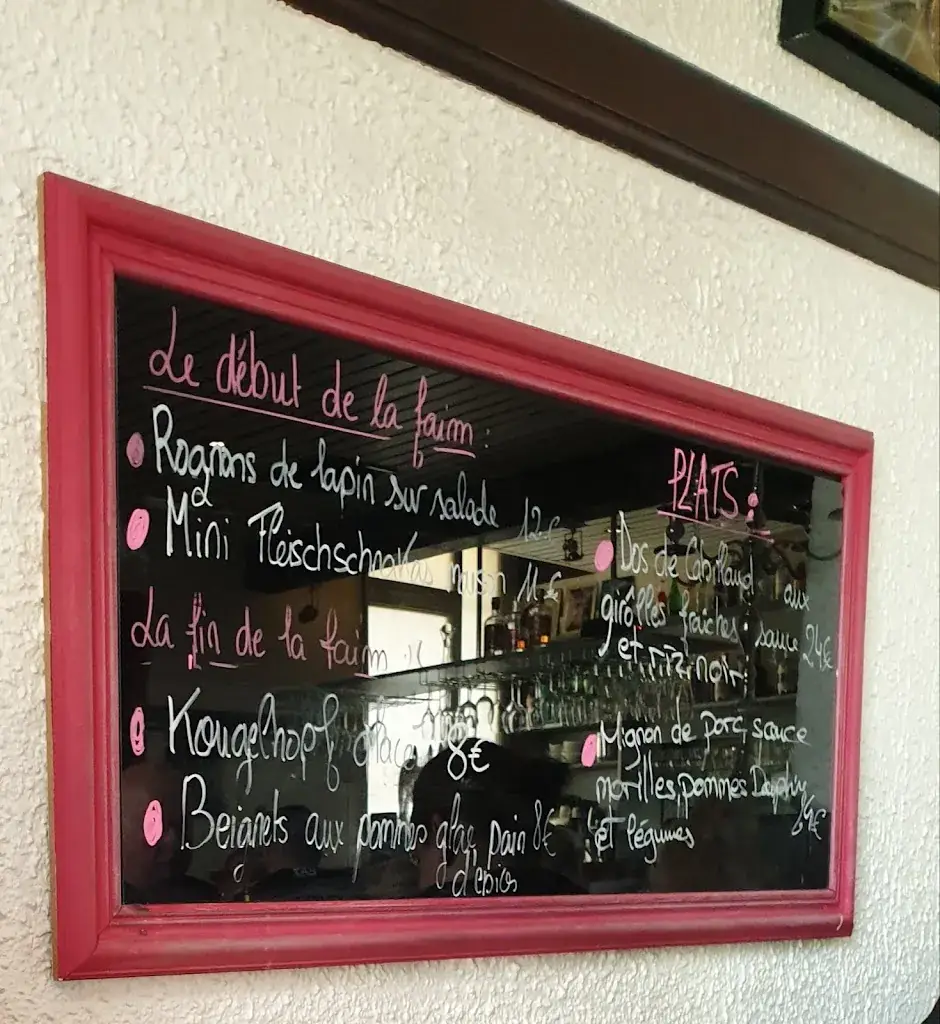 Le début de la faim :
Rognons de lapin sur salade 12€
Mini Fleischschnakas maison 11€
La fin de la faim :
Kougelhopf glacé 8€
Beignets aux pommes glac pain 8€
d'épices
PLATS :
Dos de Cabillaud aux
girolles fraîches, sauce 24€
et riz noir
Mignon de porc, sauce
morilles, pommes Dauphy
et légumes